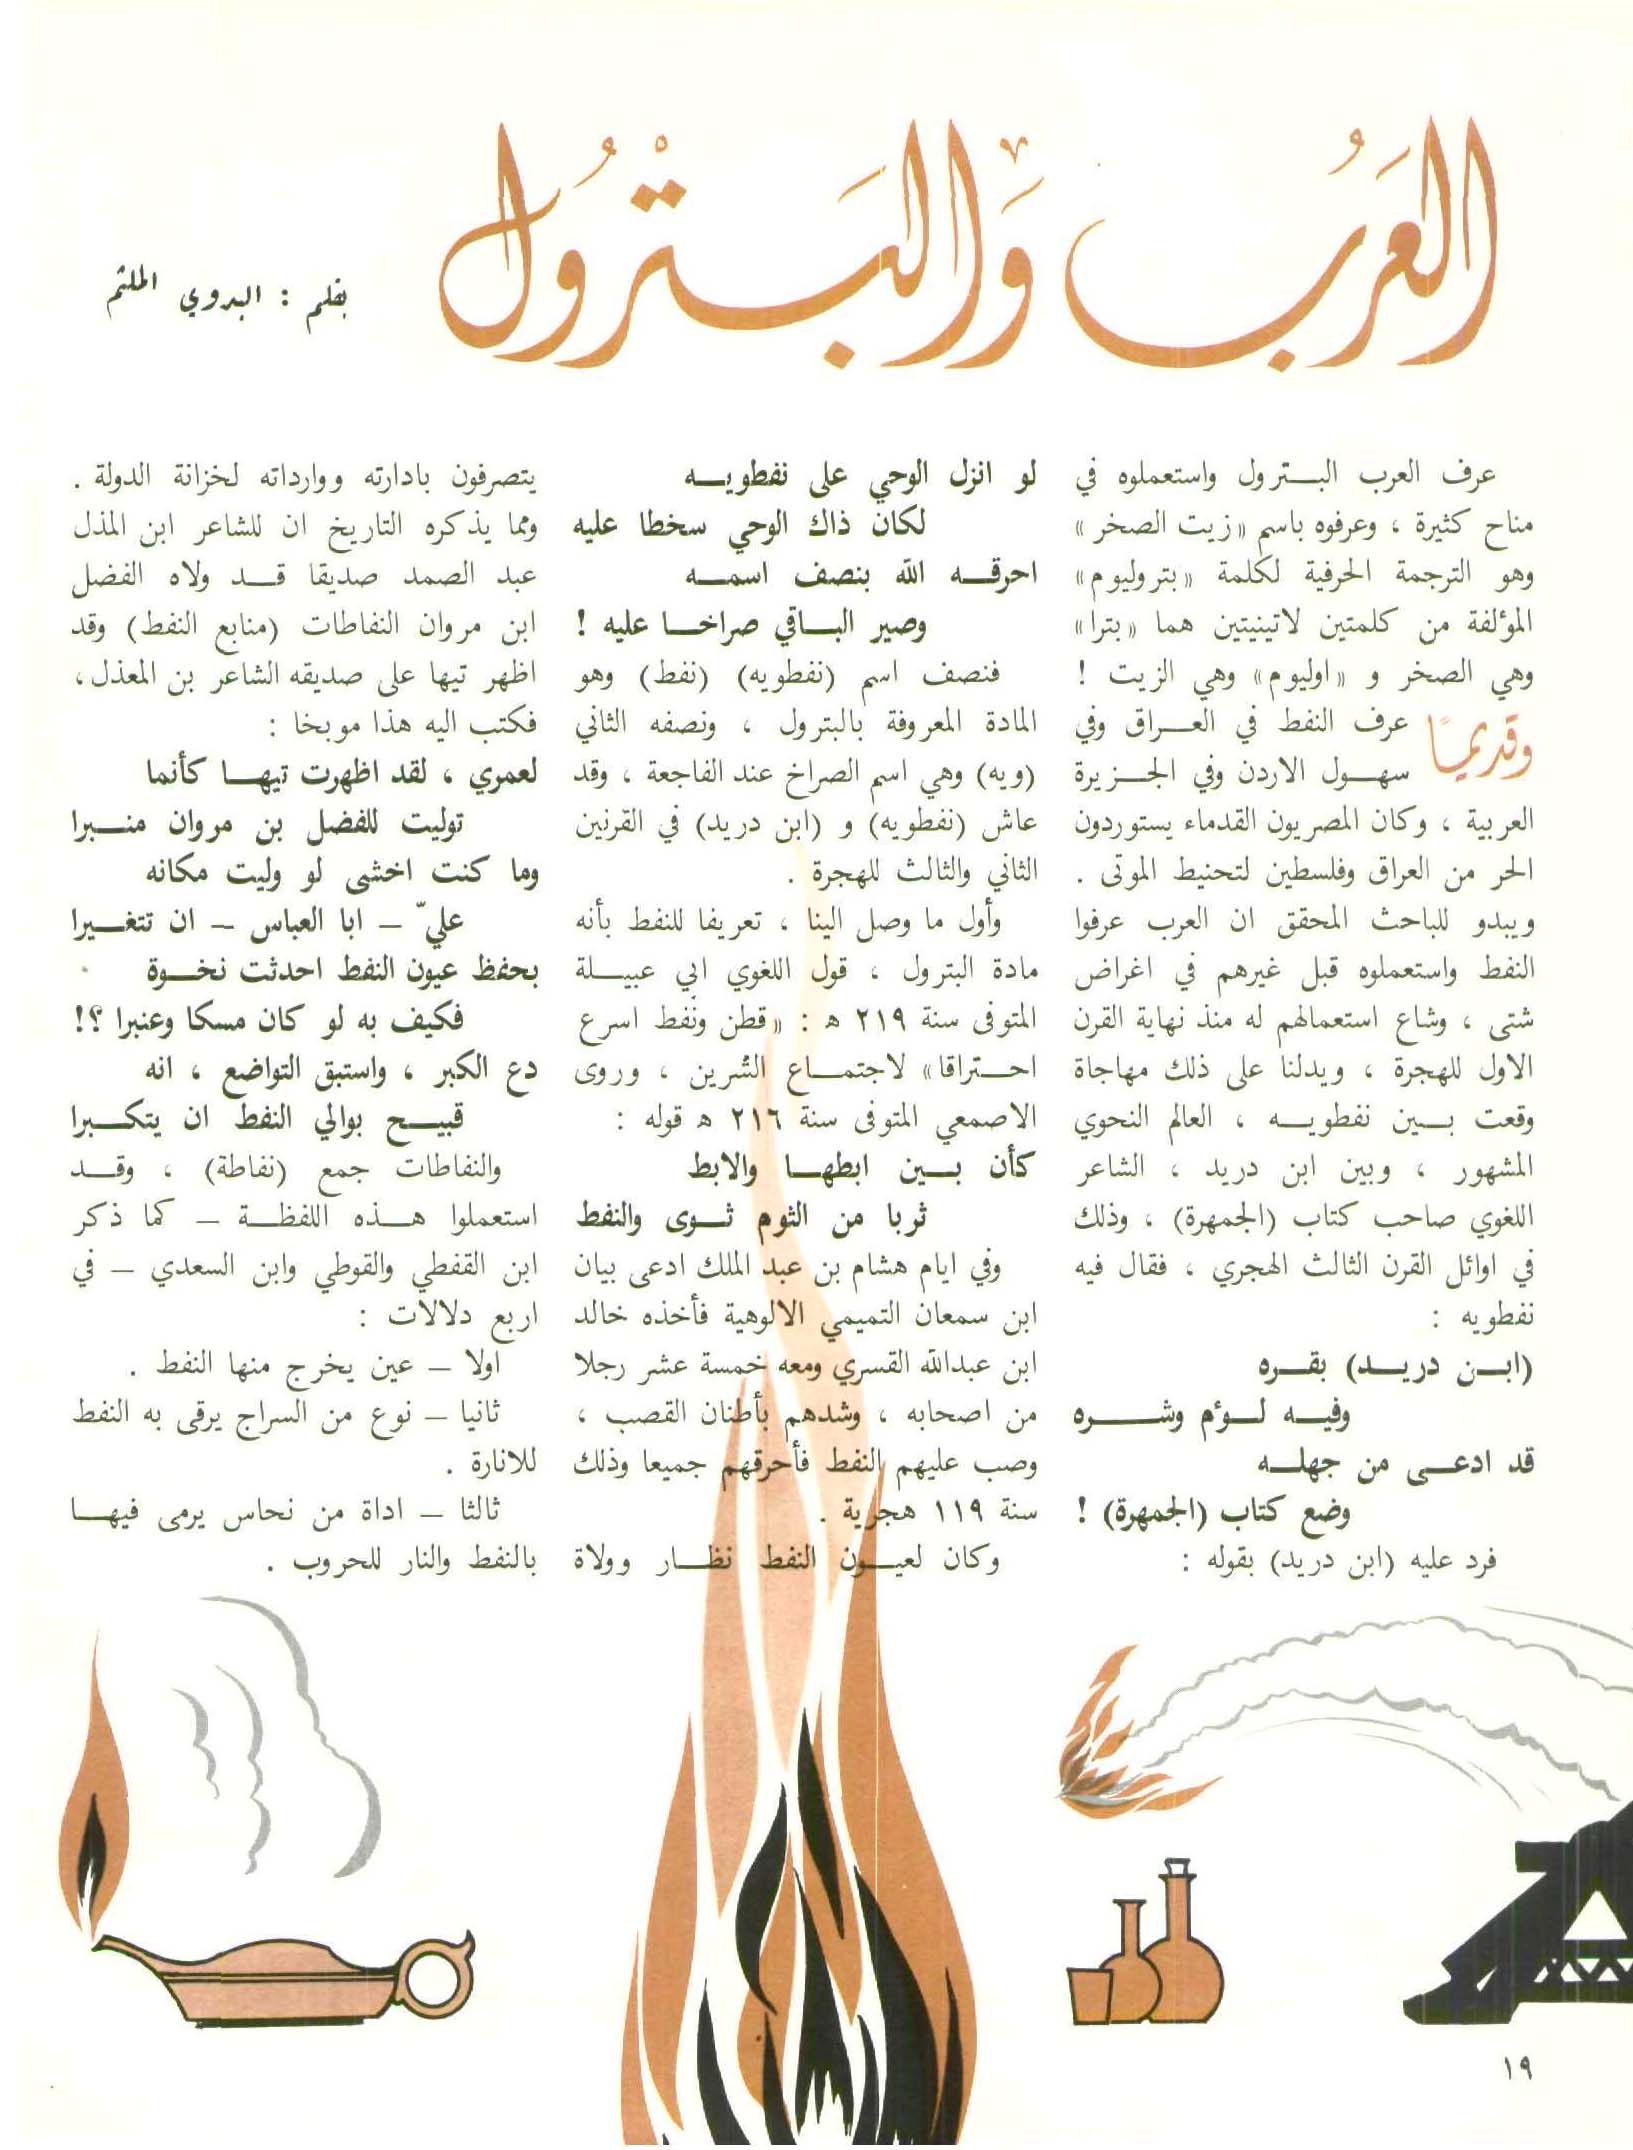 العَرَبُ وَالبَتْرُول
بقلم : البدوي الملثم
عرف العرب البترول واستعملوه في
مناح كثيرة ، وعرفوه باسم «زيت الصخر»
وهو الترجمة الحرفية لكلمة «بتروليوم»
المؤلفة من كلمتين لاتينيتين هما «بترا»
وهي الصخر و «اوليوم» وهي الزيت !
وقديمًا عرف النفط في العراق وفي
سهول الاردن وفي الجزيرة
العربية ، وكان المصريون القدماء يستوردون
الحر من العراق وفلسطين لتحنيط الموتى .
ويبدو للباحث المحقق ان العرب عرفوا
النفط واستعملوه قبل غيرهم في اغراض
شتى ، وشاع استعمالهم له منذ نهاية القرن
الاول للهجرة ، ويدلنا على ذلك مهاجاة
وقعت بين نفطويه ، العالم النحوي
المشهور ، وبين ابن دريد ، الشاعر
اللغوي صاحب كتاب (الجمهرة) ، وذلك
في اوائل القرن الثالث الهجري ، فقال فيه
نفطويه :
(ابن دريد) بقره
وفيه لؤم وشره
قد ادعى من جهله
وضع كتاب (الجمهرة) !
فرد عليه (ابن دريد) بقوله :
لو انزل الوحي على نفطويه
لكان ذاك الوحي سخطا عليه
احرقه الله بنصف اسمه
وصير الباقي صراخا عليه !
فنصف اسم (نفطويه) (نفط) وهو
المادة المعروفة بالبترول ، ونصفه الثاني
(ويه) وهي اسم الصراخ عند الفاجعة ، وقد
عاش (نفطويه) و (ابن دريد) في القرنين
الثاني والثالث للهجرة .
وأول ما وصل الينا ، تعريفا للنفط بأنه
مادة البترول ، قول اللغوي ابي عبيلة
المتوفى سنة ٢١٩ ه : «قطن ونفط اسرع
احتراقا» لاجتماع الشرين ، وروى
الاصمعي المتوفى سنة ٢١٦ ه قوله :
كأن بين ابطها والابط
ثربا من الثوم ثوى والنفط
وفي ايام هشام بن عبد الملك ادعى بيان
ابن سمعان التميمي الالوهية فأخذه خالد
ابن عبدالله القسري ومعه خمسة عشر رجلا
من اصحابه ، وشدهم بأطنان القصب ،
وصب عليهم النفط فأحرقهم جميعا وذلك
سنة ١١٩ هجرية .
وكان لعيون النفط نظار وولاة
يتصرفون بادارته ووارداته لخزانة الدولة .
ومما يذكره التاريخ ان للشاعر ابن المذل
عبد الصمد صديقا قد ولاه الفضل
ابن مروان النفاطات (منابع النفط) وقد
اظهر تيها على صديقه الشاعر بن المعذل ،
فكتب اليه هذا موبخا :
لعمري ، لقد اظهرت تيها كأنما
توليت للفضل بن مروان منبرا
وما كنت اخشى لو وليت مكانه
عليّ - ابا العباس - ان تتغيرا
بحفظ عيون النفط احدثت نخوة
فكيف به لو كان مسكا وعنبرا ؟!
دع الكبر ، واستبق التواضع ، انه
قبيح بوالي النفط ان يتكبرا
والنفاطات جمع (نفاطة) ، وقد
استعملوا هذه اللفظة - كما ذكر
ابن القفطي والقوطي وابن السعدي - في
اربع دلالات :
اولا - عين يخرج منها النفط .
ثانيا - نوع من السراج يرقى به النفط
للانارة .
ثالثا - اداة من نحاس يرمى فيها
بالنفط والنار للحروب .
١٩